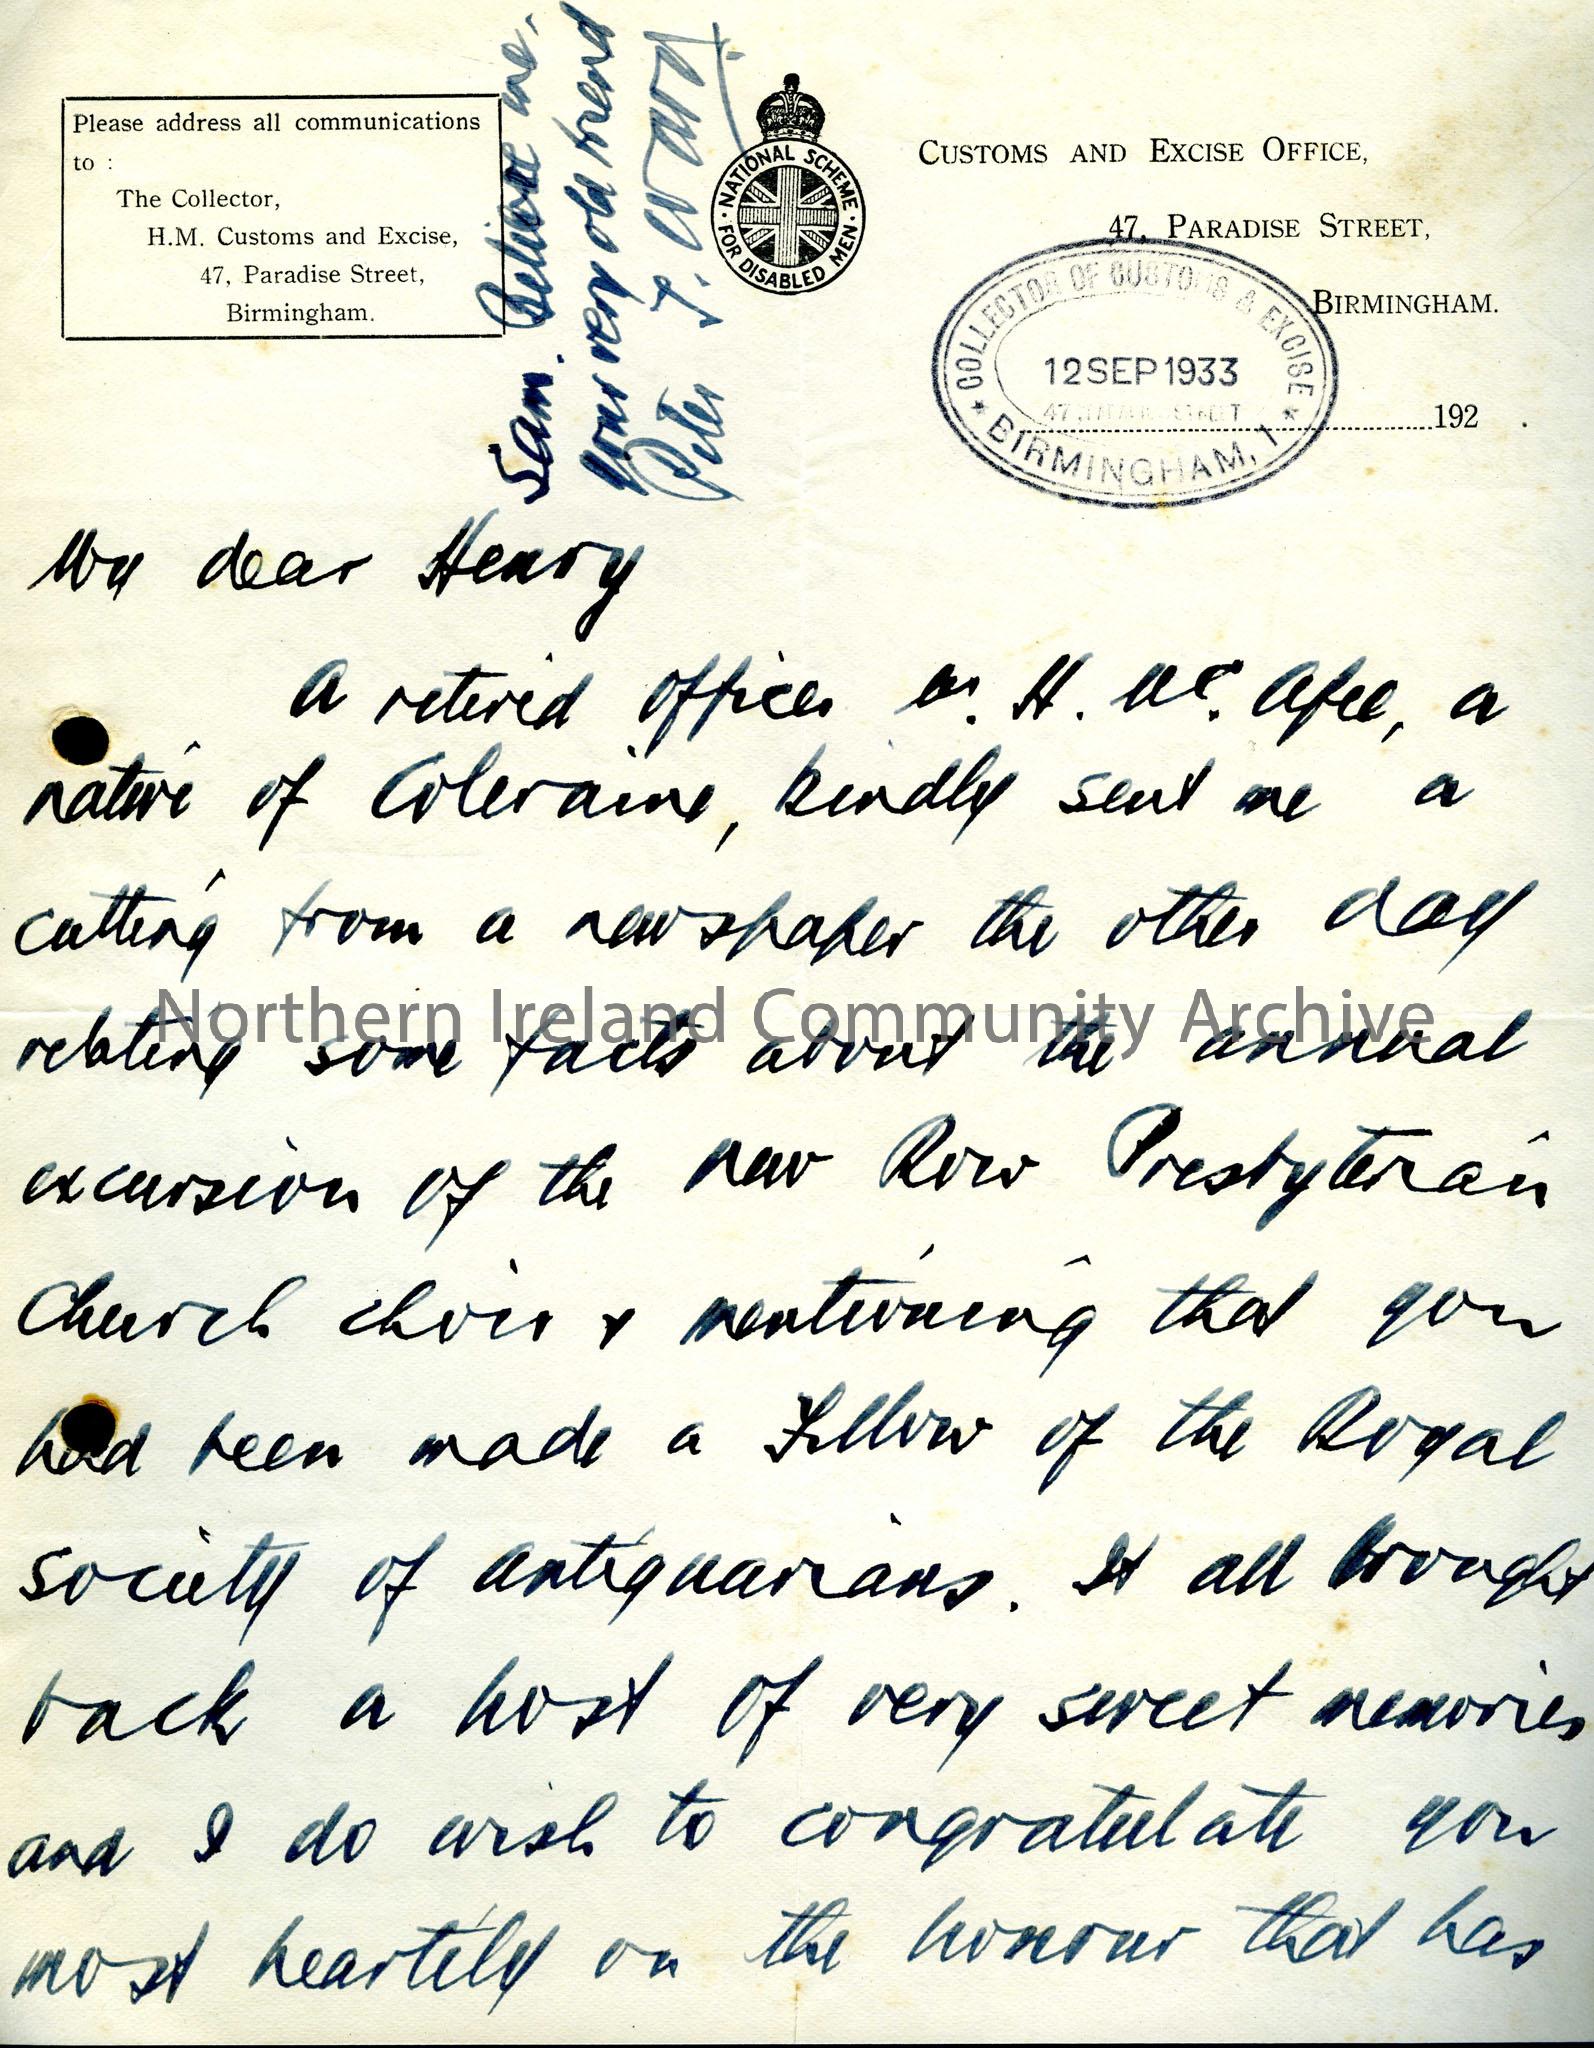 Please address all communications
to :
The Collector,
H.M. Customs and Excise,
47, Paradise Street,
Birmingham.
Sam. Believe me.
your very old friend
Peter F. Ward.
NATIONAL SCHEME
FOR DISABLED MEN
CUSTOMS AND EXCISE OFFICE,
47, PARADISE STREET,
BIRMINGHAM.
COLLECTOR OF CUSTOMS & EXCISE
12 SEP 1933
47 STREET
BIRMINGHAM, 1
192 .
My dear Henry
A retired officer H. Mc. Afee, a
native of Coleraine, kindly sent me a
cutting from a newspaper the other day
relating some facts about the annual
excursion of the new Row Presbyterian
Church choir & mentioning that you
had been made a Fellow of the Royal
Society of Antiquarians. It all brought
back a host of very sweet memories
and I do wish to congratulate you
most heartily on the honour that has
Northern Ireland Community Archive